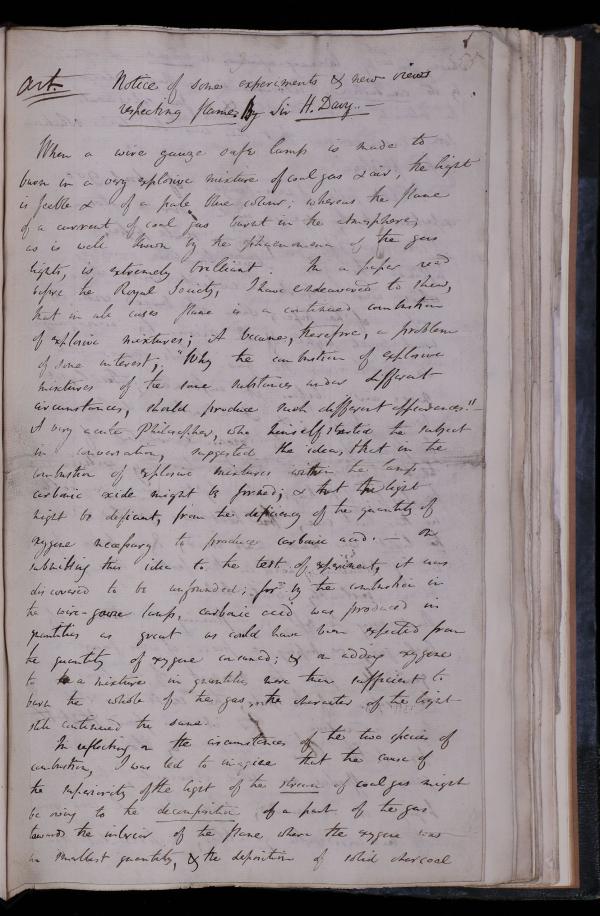 Art. Notice of some experiments & new views
respecting flame, by Sir H. Davy. —
When a wire gauze safe lamp is made to
burn in a very explosive mixture of coal gas & air, the light
is feeble & of a pale blue colour; whereas the flame
of a current of coal gas burnt in the atmosphere,
as is well known by the phaenomena of the gas
lights, is extremely brilliant. In a paper read
before the Royal Society, I have endeavored to shew,
that in all cases flame is a continued combustion
of explosive mixtures; it became, therefore, a problem
of some interest, "Why the combustion of explosive
mixtures of the same substances under different
circumstances, should produce such different appearances." —
A very acute Philosopher, who himself started the subject
in conversation, suggested the idea, that in the
combustion of explosive mixtures within the lamp
carbonic oxide might be formed; & that the light
might be deficient, from the deficiency of the quantity of
oxygene necessary to produce carbonic acid. — On
submitting this idea to the test of experiment, it was
discovered to be unfounded; for by the combustion in
the wire-gauze lamp, carbonic acid was produced in
quantities as great as could have been expected from
the quantity of oxygene consumed; & on adding oxygene
to a mixture in quantities more than sufficient to
burn the whole of the gas, the character of the light
still continued the same.
In reflecting on the circumstances of the two species of
combustion, I was led to imagine that the cause of
the superiority of the light of the stream of coal gas might
be owing to the decomposition of a part of the gas
towards the interior of the flame where the oxygene was
in smallest quantity, & the deposition of solid charcoal